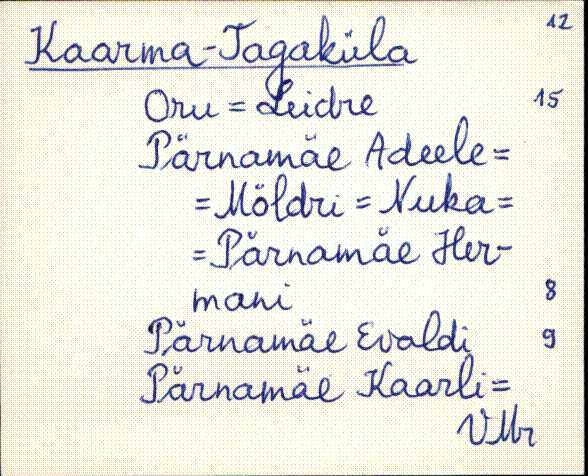 12
Kaarma-Tagaküla
Oru = Leidre 15
Pärnamäe Adeele =
= Möldri = Nuka =
= Pärnamäe Her-
mani 8
Pärnamäe Evaldi 9
Pärnamäe Kaarli =